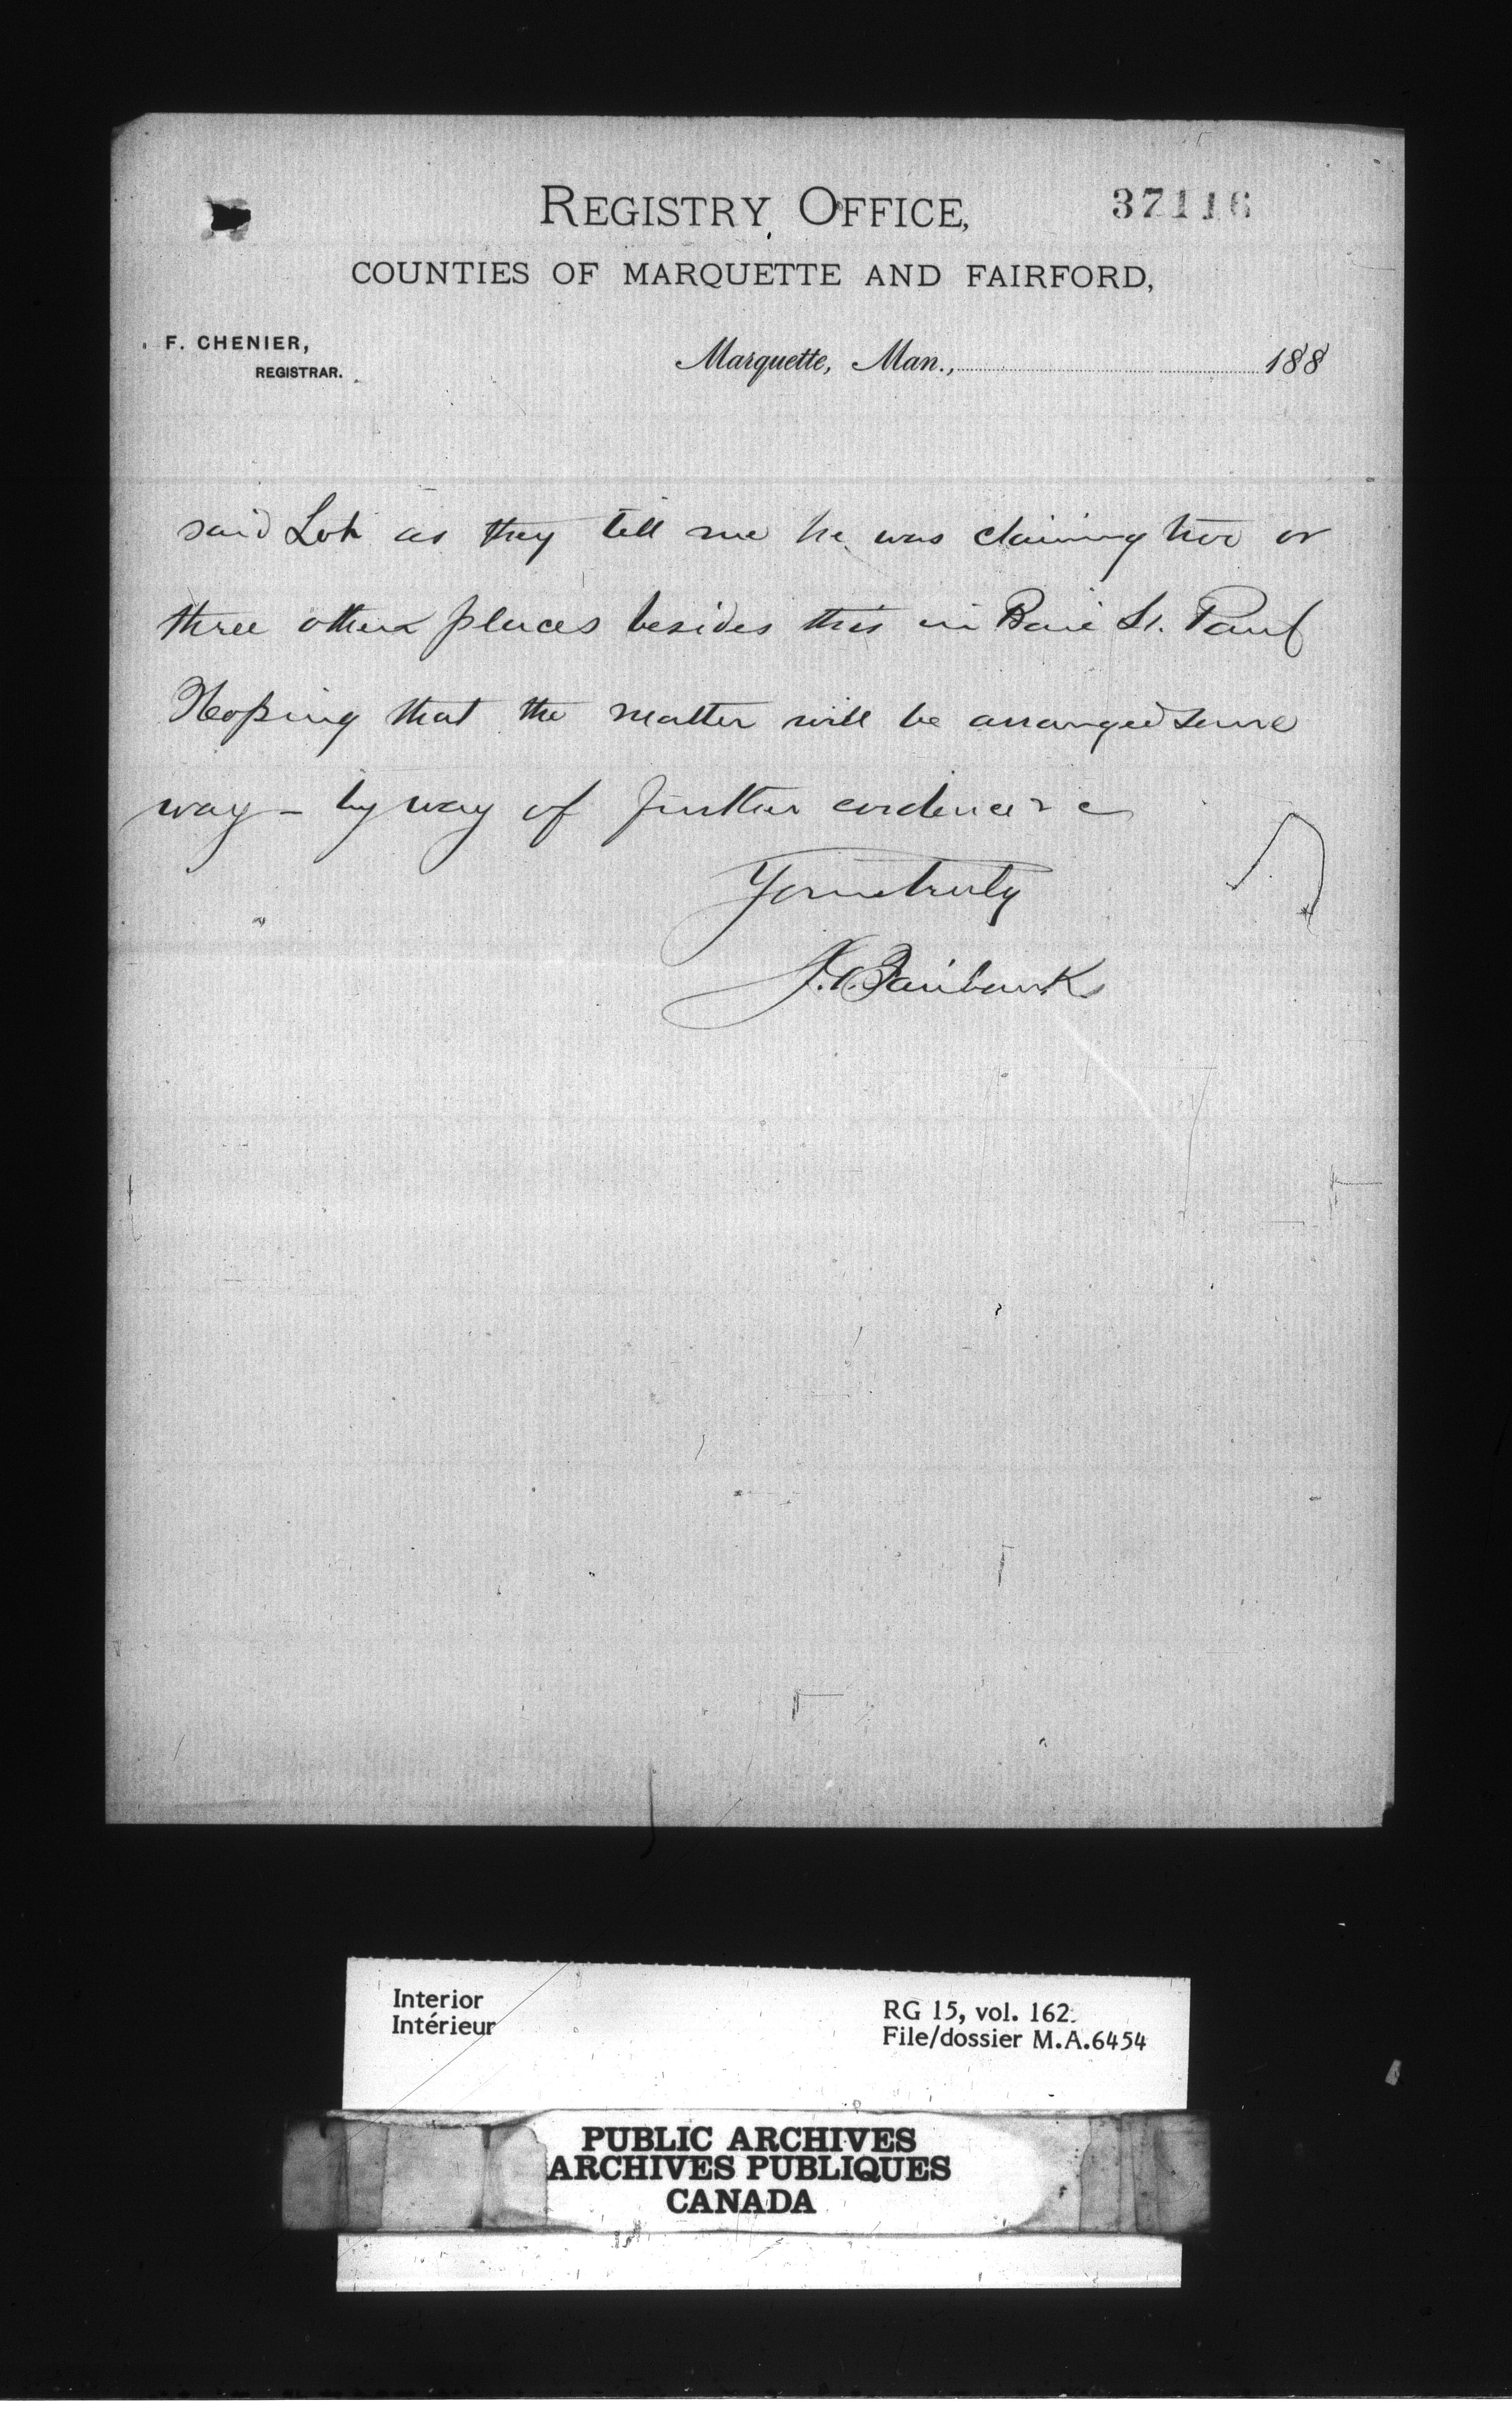 REGISTRY OFFICE,
37116
COUNTIES OF MARQUETTE AND FAIRFORD,
F. CHENIER,
REGISTRAR.
Marquette, Man., 188
said Lot as they tell me he was claiming two or
three other places besides this in Baie St. Paul
Hoping that the matter will be arranged some
way - by way of further evidence &c
Yours truly
Fairbanks
Interior
Intérieur
RG 15, vol. 162
File/dossier M.A.6454
PUBLIC ARCHIVES
ARCHIVES PUBLIQUES
CANADA